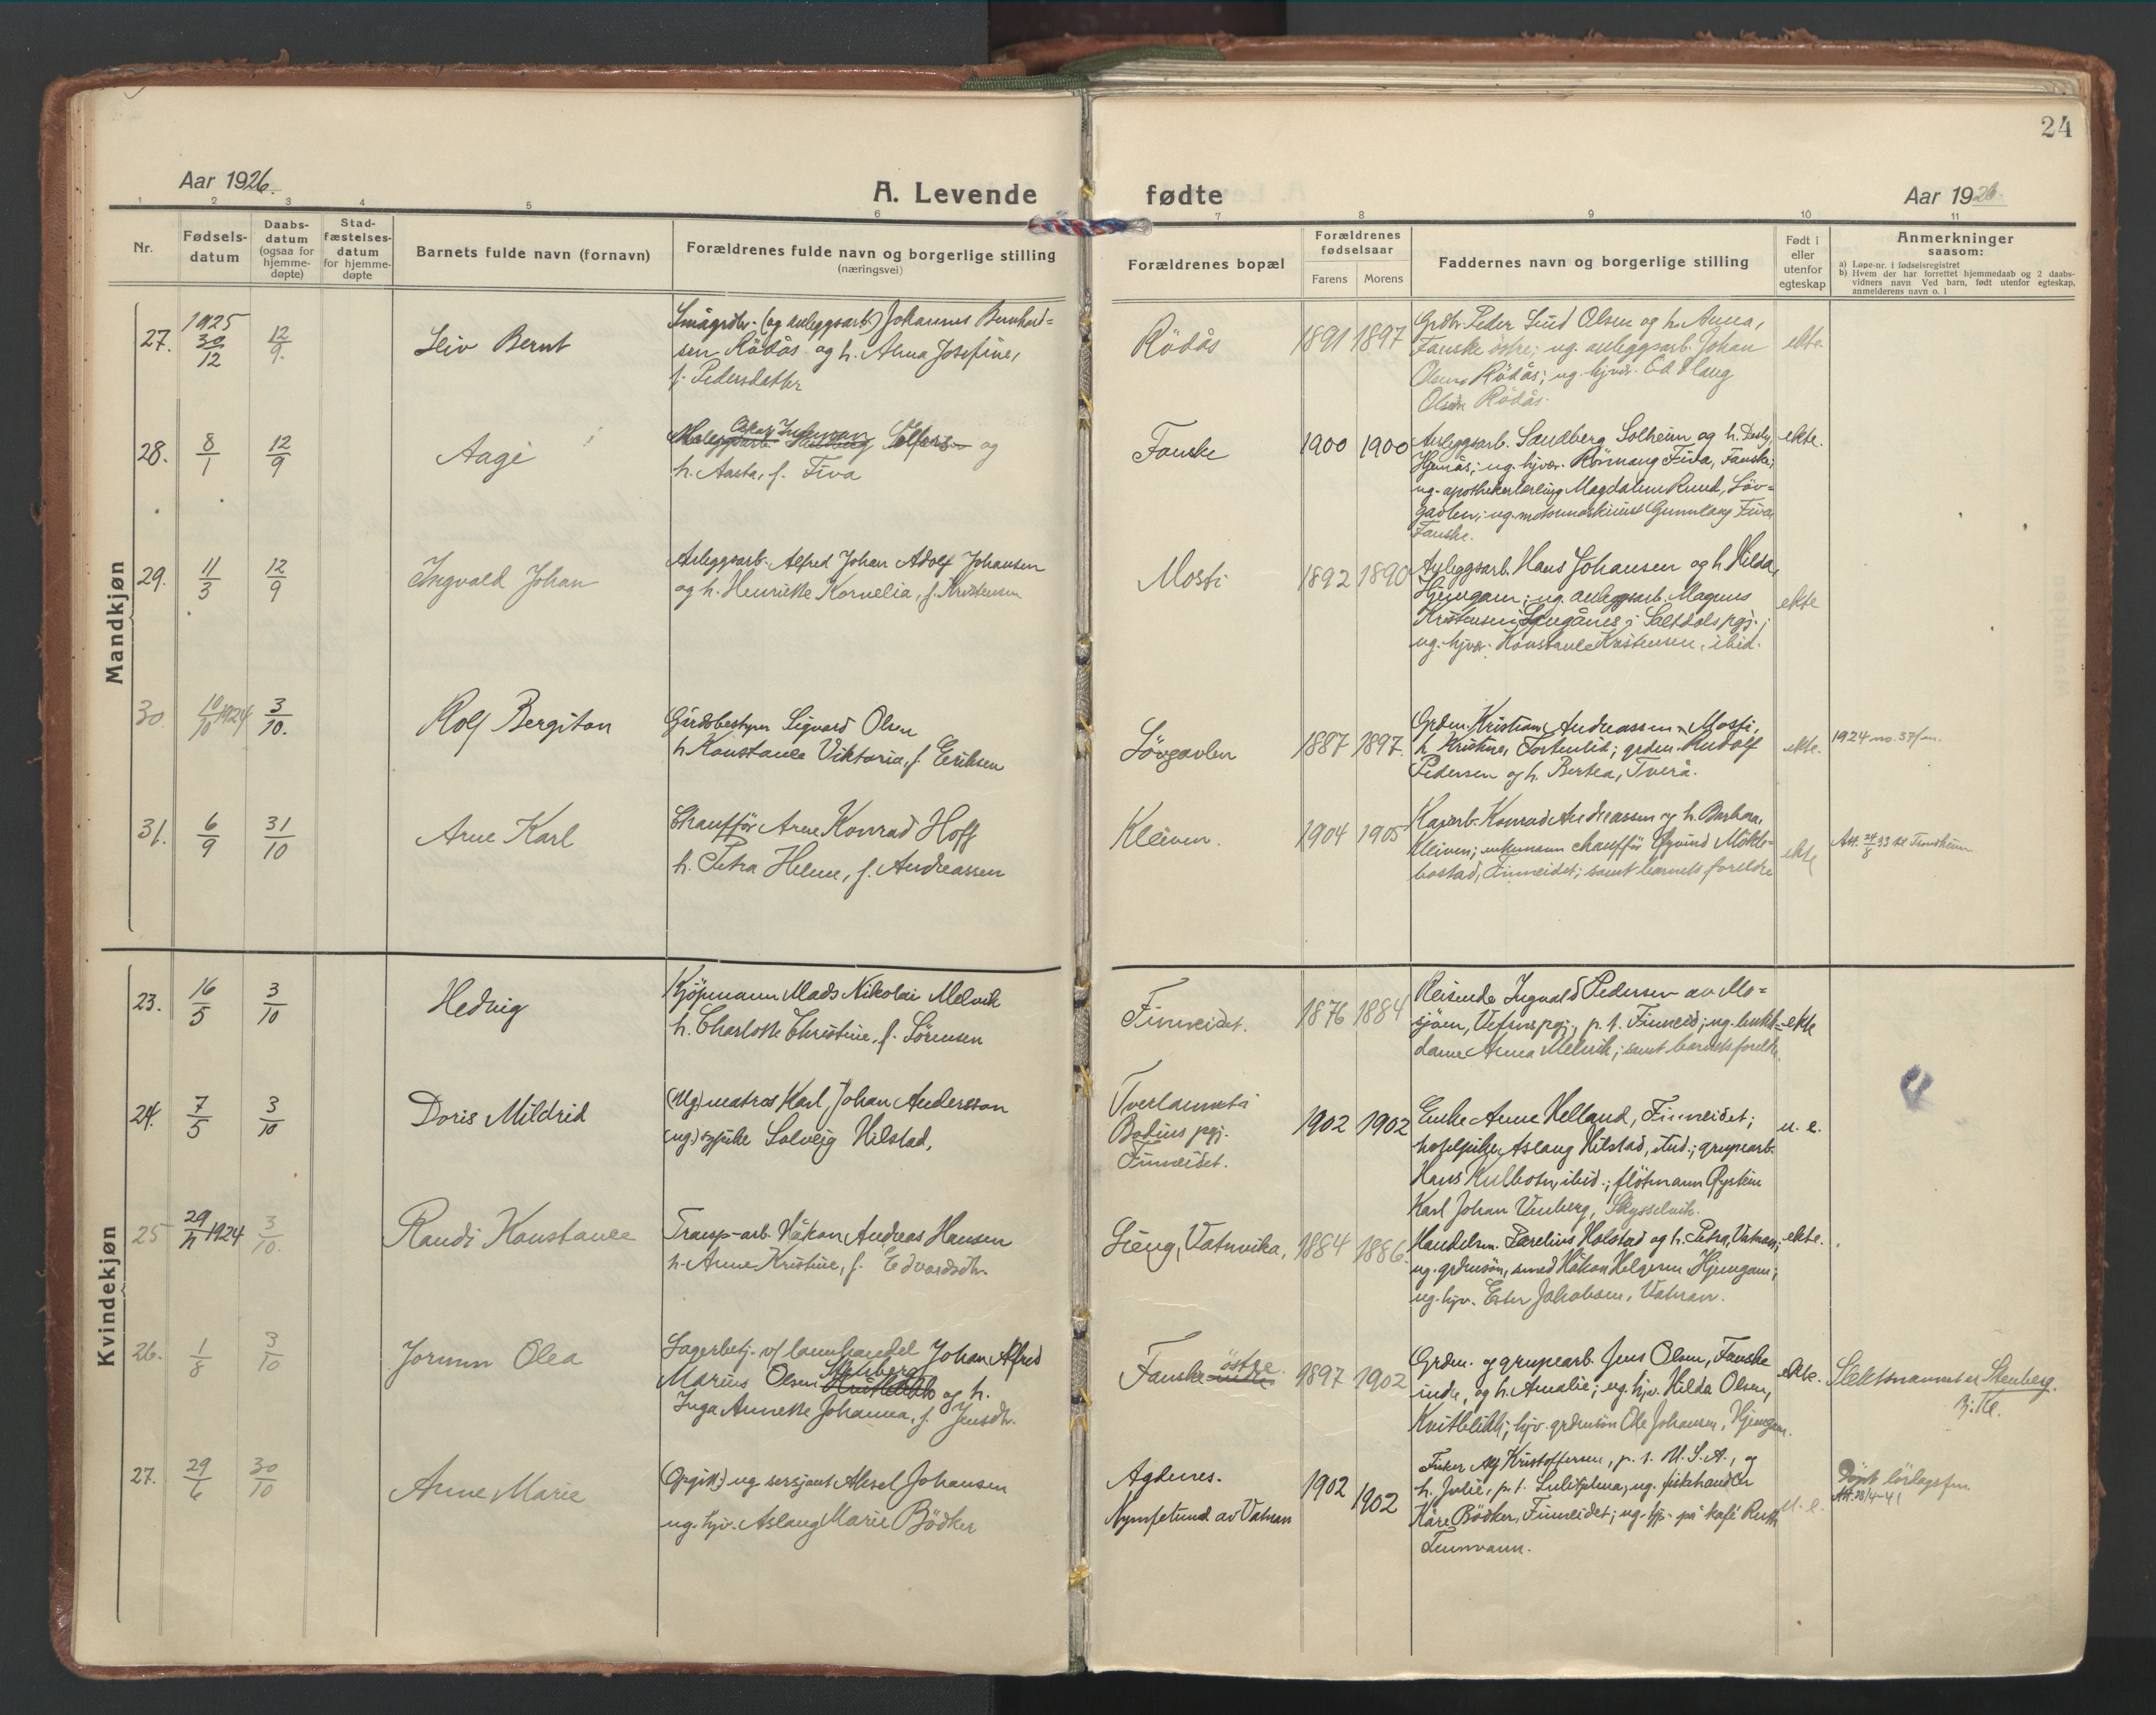 24
Aar 1926.
A. Levende
fødte
Aar 1926.
1 2 3 4 5 6 7 8 9 10 11
Nr.
Fødsels-
datum
Daabs-
datum
(ogsaa for
hjemme-
døpte)
Stad-
fæstelses-
datum
for hjemme-
døpte
Barnets fulde navn (fornavn)
Forældrenes fulde navn og borgerlige stilling
(næringsvei)
Forældrenes bopæl
Forældrenes
fødselsaar
Farens Morens
Faddernes navn og borgerlige stilling
Født i
eller
utenfor
egteskap
Anmerkninger
saasom:
a) Løpe-nr. i fødselsregistret
b) Hvem der har forrettet hjemmedaab og 2 daabs-
vidners navn Ved barn, født utenfor egteskap,
anmelderens navn o. l
Mandkjøn
27. 1925 30/12 12/9. Bernt
Smågrdbr. (og anleggsarb.) Johannes Bernhard=
sen Rödås og h. Anna Josefine,
f. Pedersdatter
Rödås 1891 1897
Grdbr. Peder Olsen og h. Anna,
Fauske östre; ug. anleggsarb. Johan
Olsen Rödås; ug. hjvær.
Olsen Rödås.
ekte.
28. 8/1 12/9 Aage
Oskar og
h. Aasta, f. Fiva
Fauske 1900 1900
Anleggsarb. Sandberg Solheim og h.
ug. hjvær. Fiva, Fauske;
ug. apothekerlærling Magdalene, Löv=
gavlen; ug. motormaskinist Gunnlaug Fiva
Fauske.
ekte.
29. 11/3 12/9 Ingvald Johan
Anleggsarb. Alfred Johan Adolf Johansen
og h. Henrikke Kornelia, f. Kristensen
Mosti 1892 1890
Anleggsarb. Hans Johansen og h. Hilda,
Hjemgam; ug. anleggsarb. Magnus
Kristensen, i Saltdals pgj.;
ug. hjvær. Konstanse Kristensen, ibid.
ekte
30. 10/10 1924 3/10. Rolf Bergiton
Gårdsbestyrer Sigvard Olsen
h. Konstanse Viktoria, f. Eriksen
Lövgavlen 1887 1897.
Grdm. Kristian Andreassen, Mosti,
h. Kristine, Tortenlid; grdm. Rudolf
Pedersen og h. Bertea, Tverå.
ekte.
1924 no. 37/m.
31. 6/9 31/10 Arne Karl
Chauffør Arne Konrad Hoff
h. Petra Helene, f. Andreassen
Kleiven. 1904 1905
Konrad Andreassen og h. Barbara,
Kleiven; enkemann chauffør Øyvind Mökle=
bostad, Finneidet; samt barnets foreldre
ekte
Att. 24/8 33 til Trondheim
Kvindekjøn
23. 16/5 3/10 Hedvig
Kjöpmann Mads Nikolai Melvik
h. Charlotte Christine, f. Sörensen
Finneidet. 1876 1884
Reisende Ingvald Pedersen av Mo=
sjöen, Vefsns pgj., p. t. Finneid; ug. butikk=
dame Anna Melvik; samt barnets foreldre.
ekte
24. 7/5 3/10 Doris Mildrid
(Ug) matros Karl Johan Andersson
(ug) sypike Solveig Hilstad,
Tverlannet i
Bodins pgj.
Finneidet.
1902 1902
Enke Anne Helland, Finneidet;
hotelpike Aslaug Hilstad, ibid.; grupearb.
Hans Kulbotn, ibid.; flötmann Öystein
Karl Johan Venberg, Skysselvik.
u. e.
25 29/11 1924 3/10. Randi Konstanse
Transp-arb. Håkon Andreas Hansen
h. Anne Kristine, f. Edvardsdtr.
Lieng, Vatnvika, 1884 1886.
Handelsm. Parelius Holstad og h. Petra, Vatnan;
ug. grdmsön, smed Håkon Helgesen Hjemgam;
ug. hjv. Ester Jakobsen, Vatnan.
ekte.
26. 1/8 3/10 Jorunn Olea
Lagerbetj. v/ lannhandel Johan Alfred
Marius Olsen Stenberg og h.
Inga Annette Johanna, f. Jensdtr.
Fauske östre 1897 1902
Grdm. og grupearb. Jens Olsen, Fauske
indre, og h. Amalie; ug. hjv. Hilda Olsen,
Kvitblikk; hjv. grdmsön Ole Johansen, Hjemgam.
ekte.
Slektsnavnet er Stenberg.
27. 29/6 30/10 Anne Marie
(Opgitt:) ug. sersjant Aksel Johansen
ug. hjv. Aslaug Marie Bödker
Agdenes.
Nymfetund av Vatnan
1902 1902
Fisker Kristoffersen, p. t. U.S.A., og
h. Julie, p. t. Sulitjelma; ug. fiskehandler
Kåre Bödker, Finneidet; ug. hjp. på kafé Ruth
Tennvann.
u. e.
Döpt lördagsfm.
Att. 28/4-41